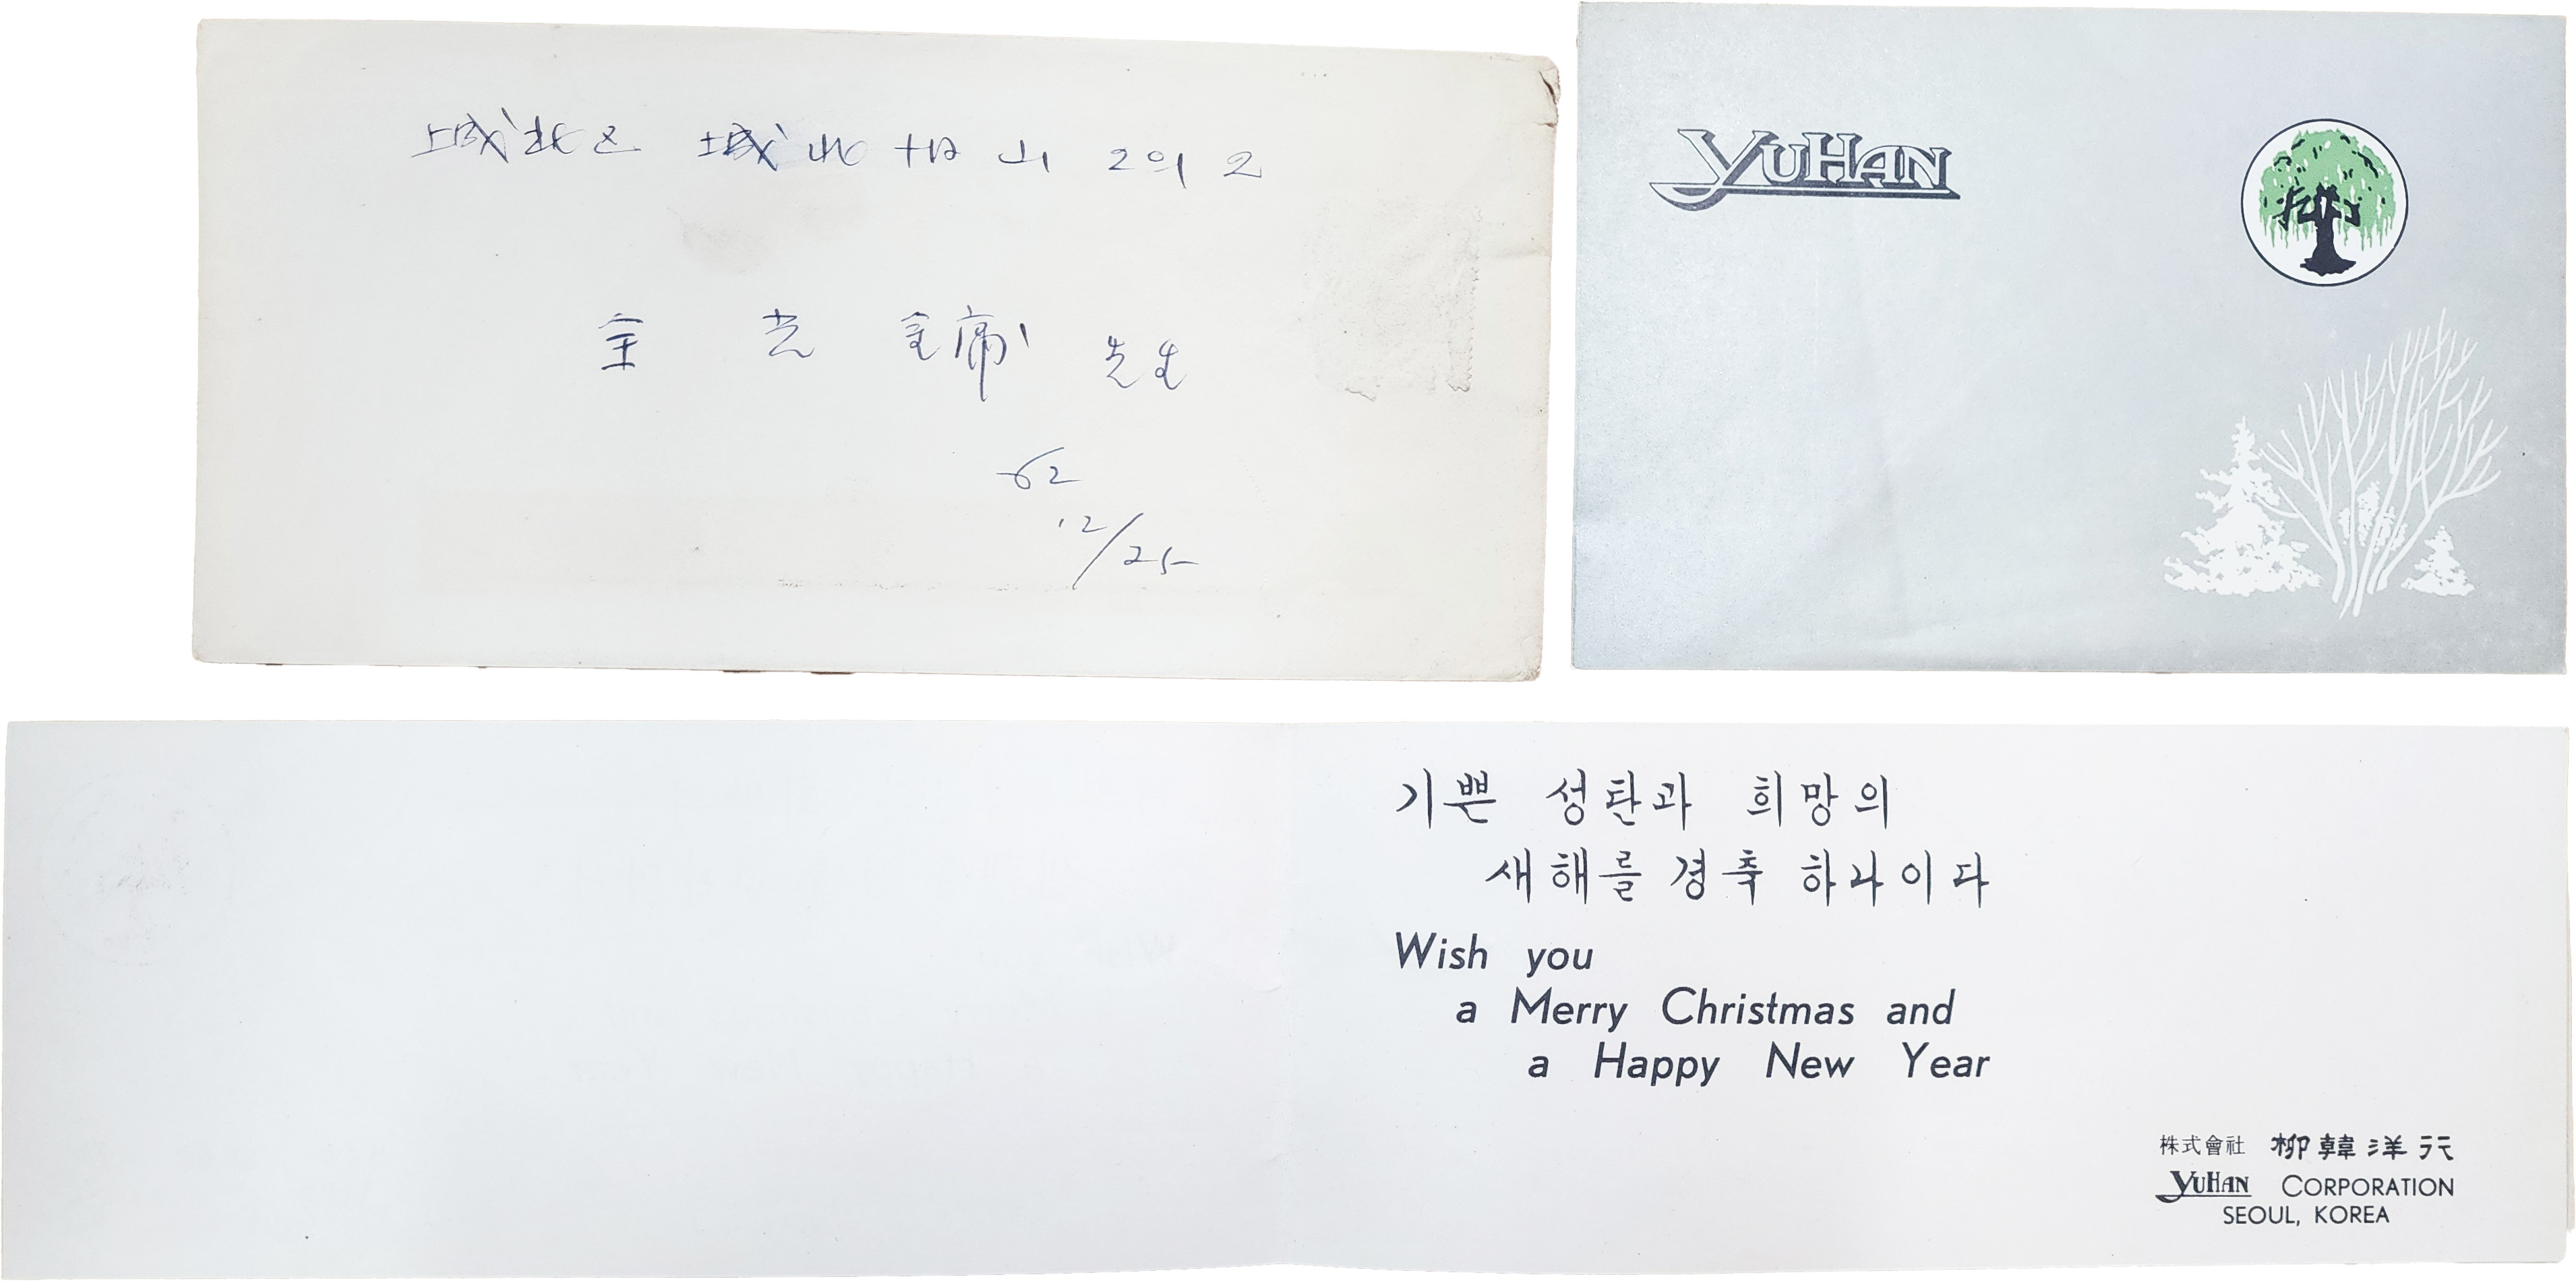 城北区 城北洞 山 2의 2
光 先生
62
12/25
YUHAN
기쁜 성탄과 희망의
새해를 경축 하나이다
Wish you
a Merry Christmas and
a Happy New Year
株式會社 柳韓洋行
YUHAN CORPORATION
SEOUL, KOREA